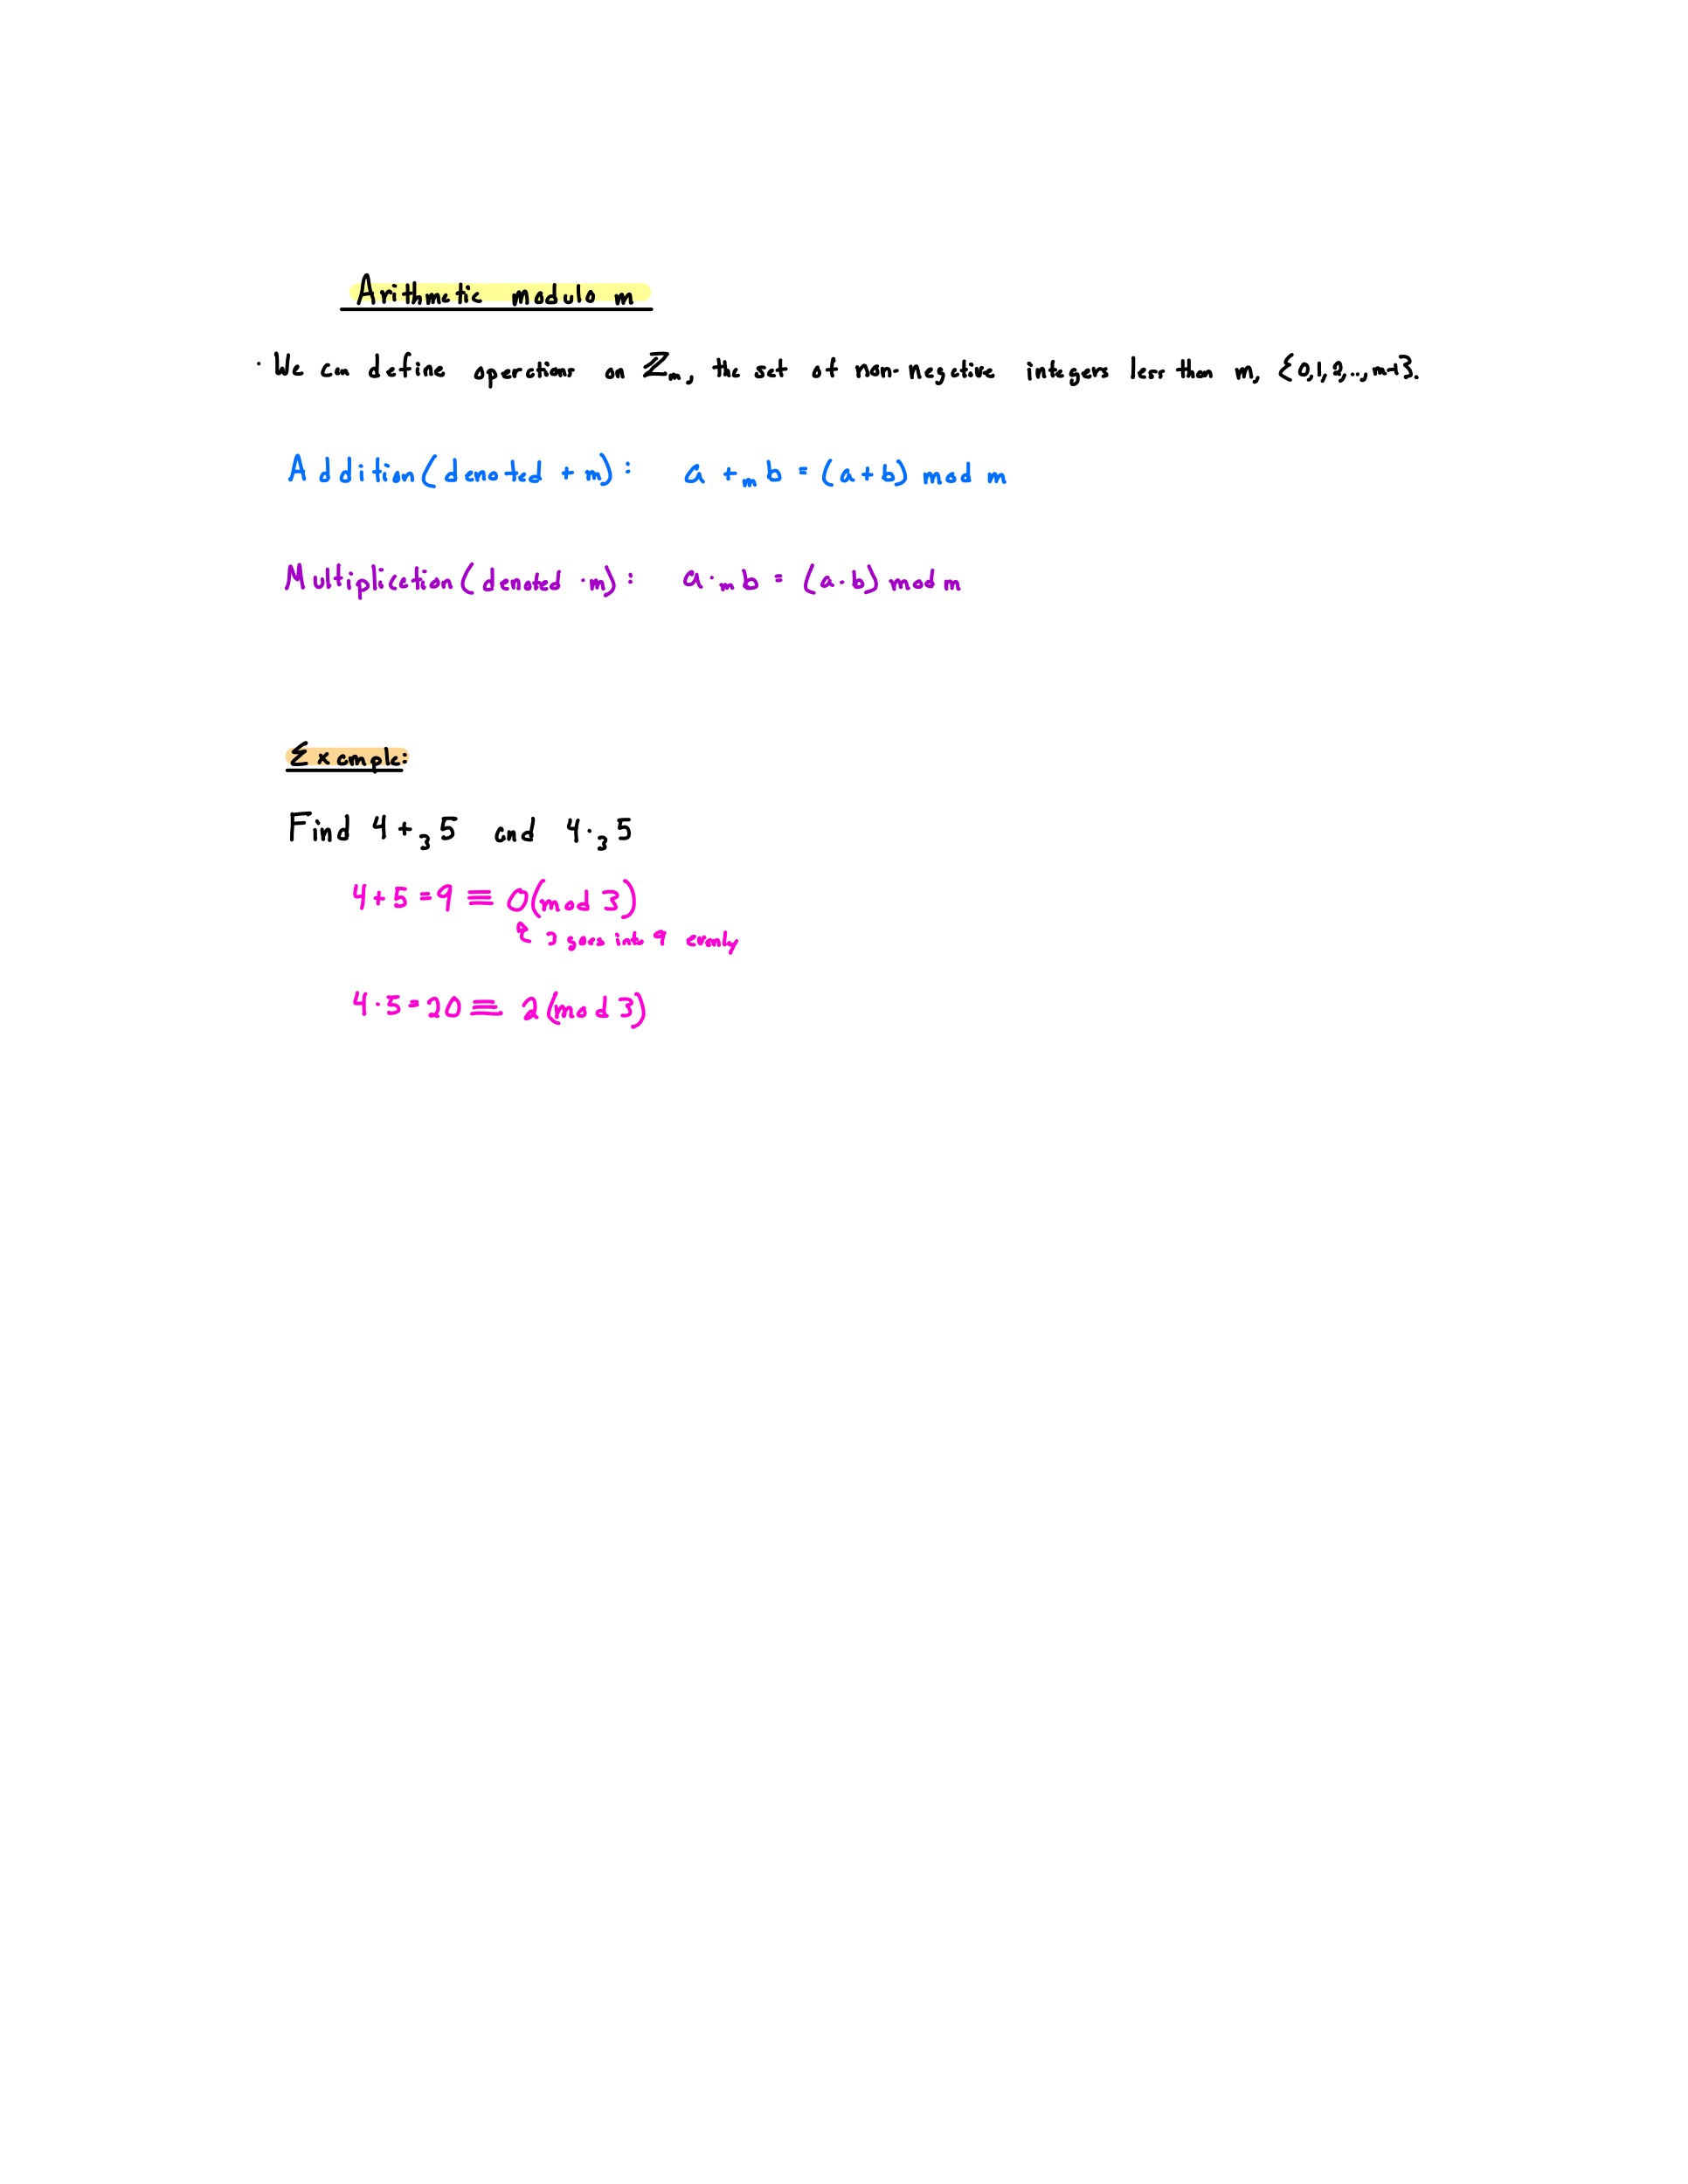 Arithmetic modulo m
· We can define operations on ℤₘ, the set of non-negative integers less than m, {0,1,2,..,m-1}.
Addition (denoted +m): a +ₘ b = (a+b) mod m
Multiplication (denoted ·m): a ·ₘ b = (a·b) mod m
Example:
Find 4 +₃ 5 and 4 ·₃ 5
4+5=9 ≡ 0(mod 3)
3 goes into 9 evenly
4·5=20 ≡ 2(mod 3)